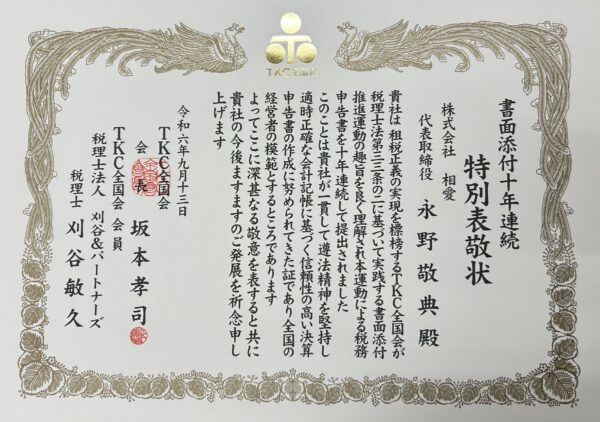 TKC全国会
書面添付十年連続
特別表敬状
株式会社 相愛
代表取締役 永野敬典殿
貴社は 租税正義の実現を標榜するTKC全国会が
税理士法第三三条の二に基づいて実践する書面添付
推進運動の趣旨を良く理解され本運動による税務
申告書を十年連続して提出されました
このことは貴社が一貫して遵法精神を堅持し
適時正確な会計記帳に基づく信頼性の高い決算
申告書の作成に努められてきた証であり全国の
経営者の模範とするところであります
よってここに深甚なる敬意を表すると共に
貴社の今後ますますのご発展を祈念申し
上げます
令和六年九月十三日
TKC全国会
会長 坂本孝司
TKC全国会 会員
税理士法人 刈谷&パートナーズ
税理士 刈谷敏久